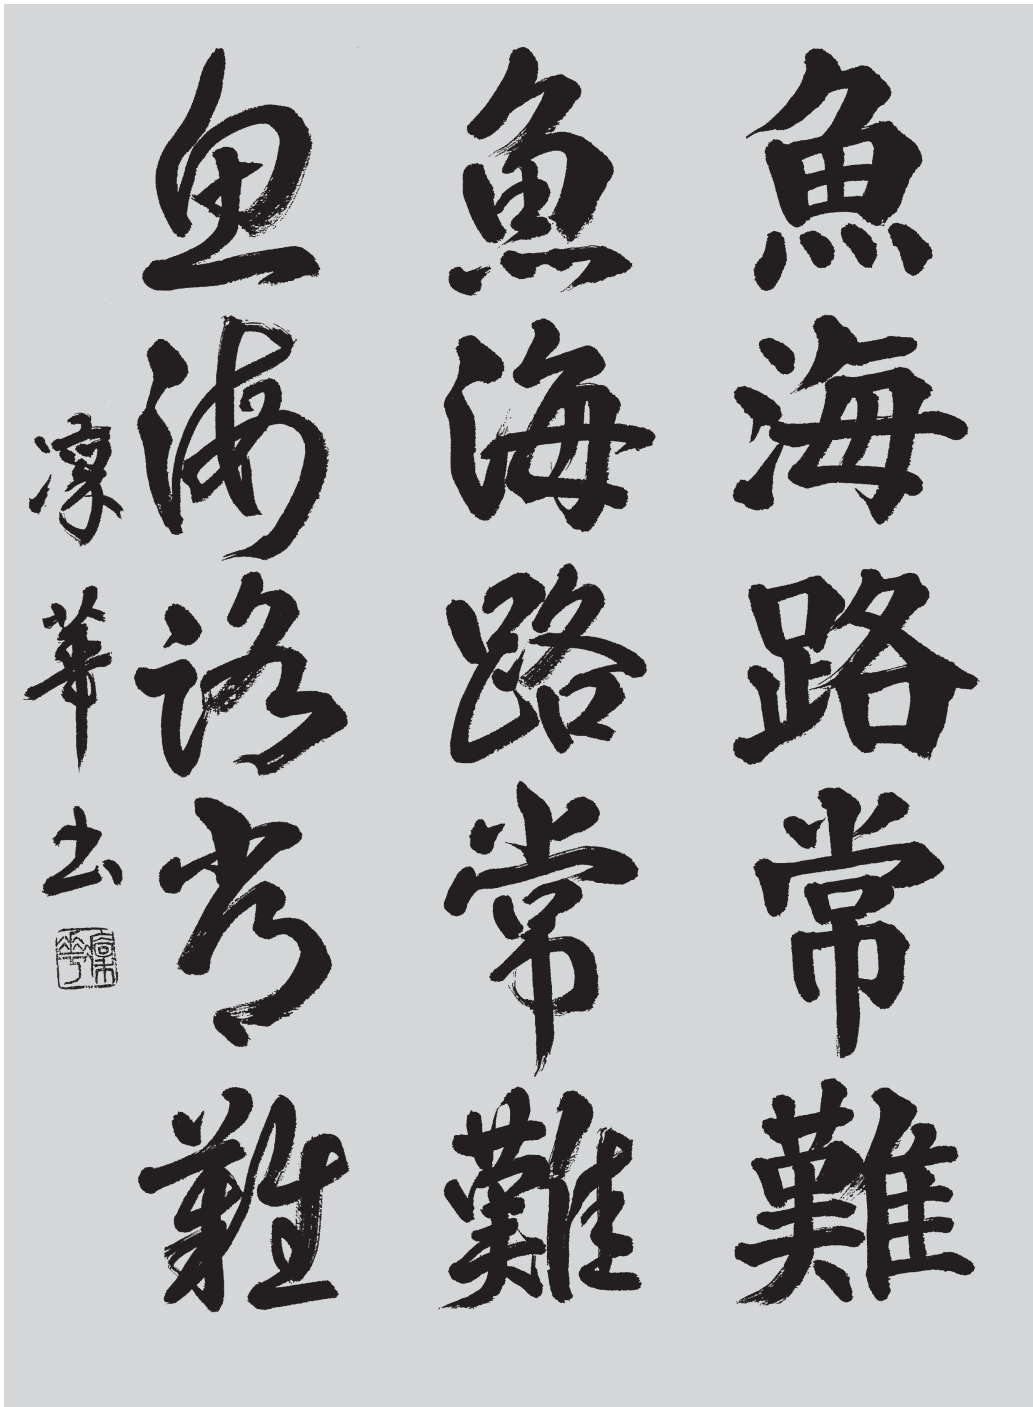 魚海路常難
魚海路常難
魚海路常難
凜華書